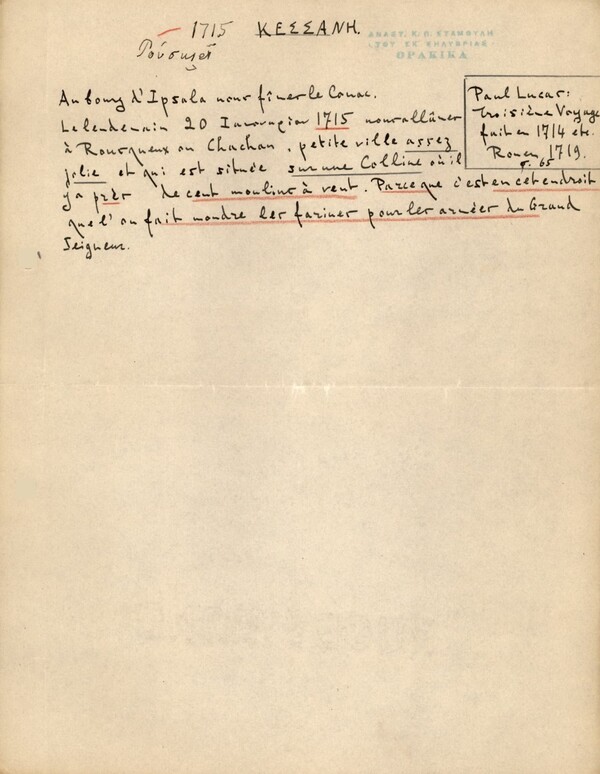 1715 ΚΕΣΣΑΝΗ.
ΑΝΑΣΤ. Κ.Π. ΣΤΑΜΟΥΛΗ
ΘΡΑΚΙΚΑ
Au bourg d'Ipsala nous fîmes le Conac.
Le lendemain 20 Ιανουαρίου 1715 nous allâmes
à Rousqueux ou Chachan, petite ville assez
jolie et qui est située sur une Colline où il
y a près de cent moulins à vent. Parce que c'est en cet endroit
que l'on fait moudre les farines pour les armées du Grand
Seigneur.
Paul Lucas:
Troisième Voyage
fait en 1714 etc.
Rouen, 1719.
σ. 65